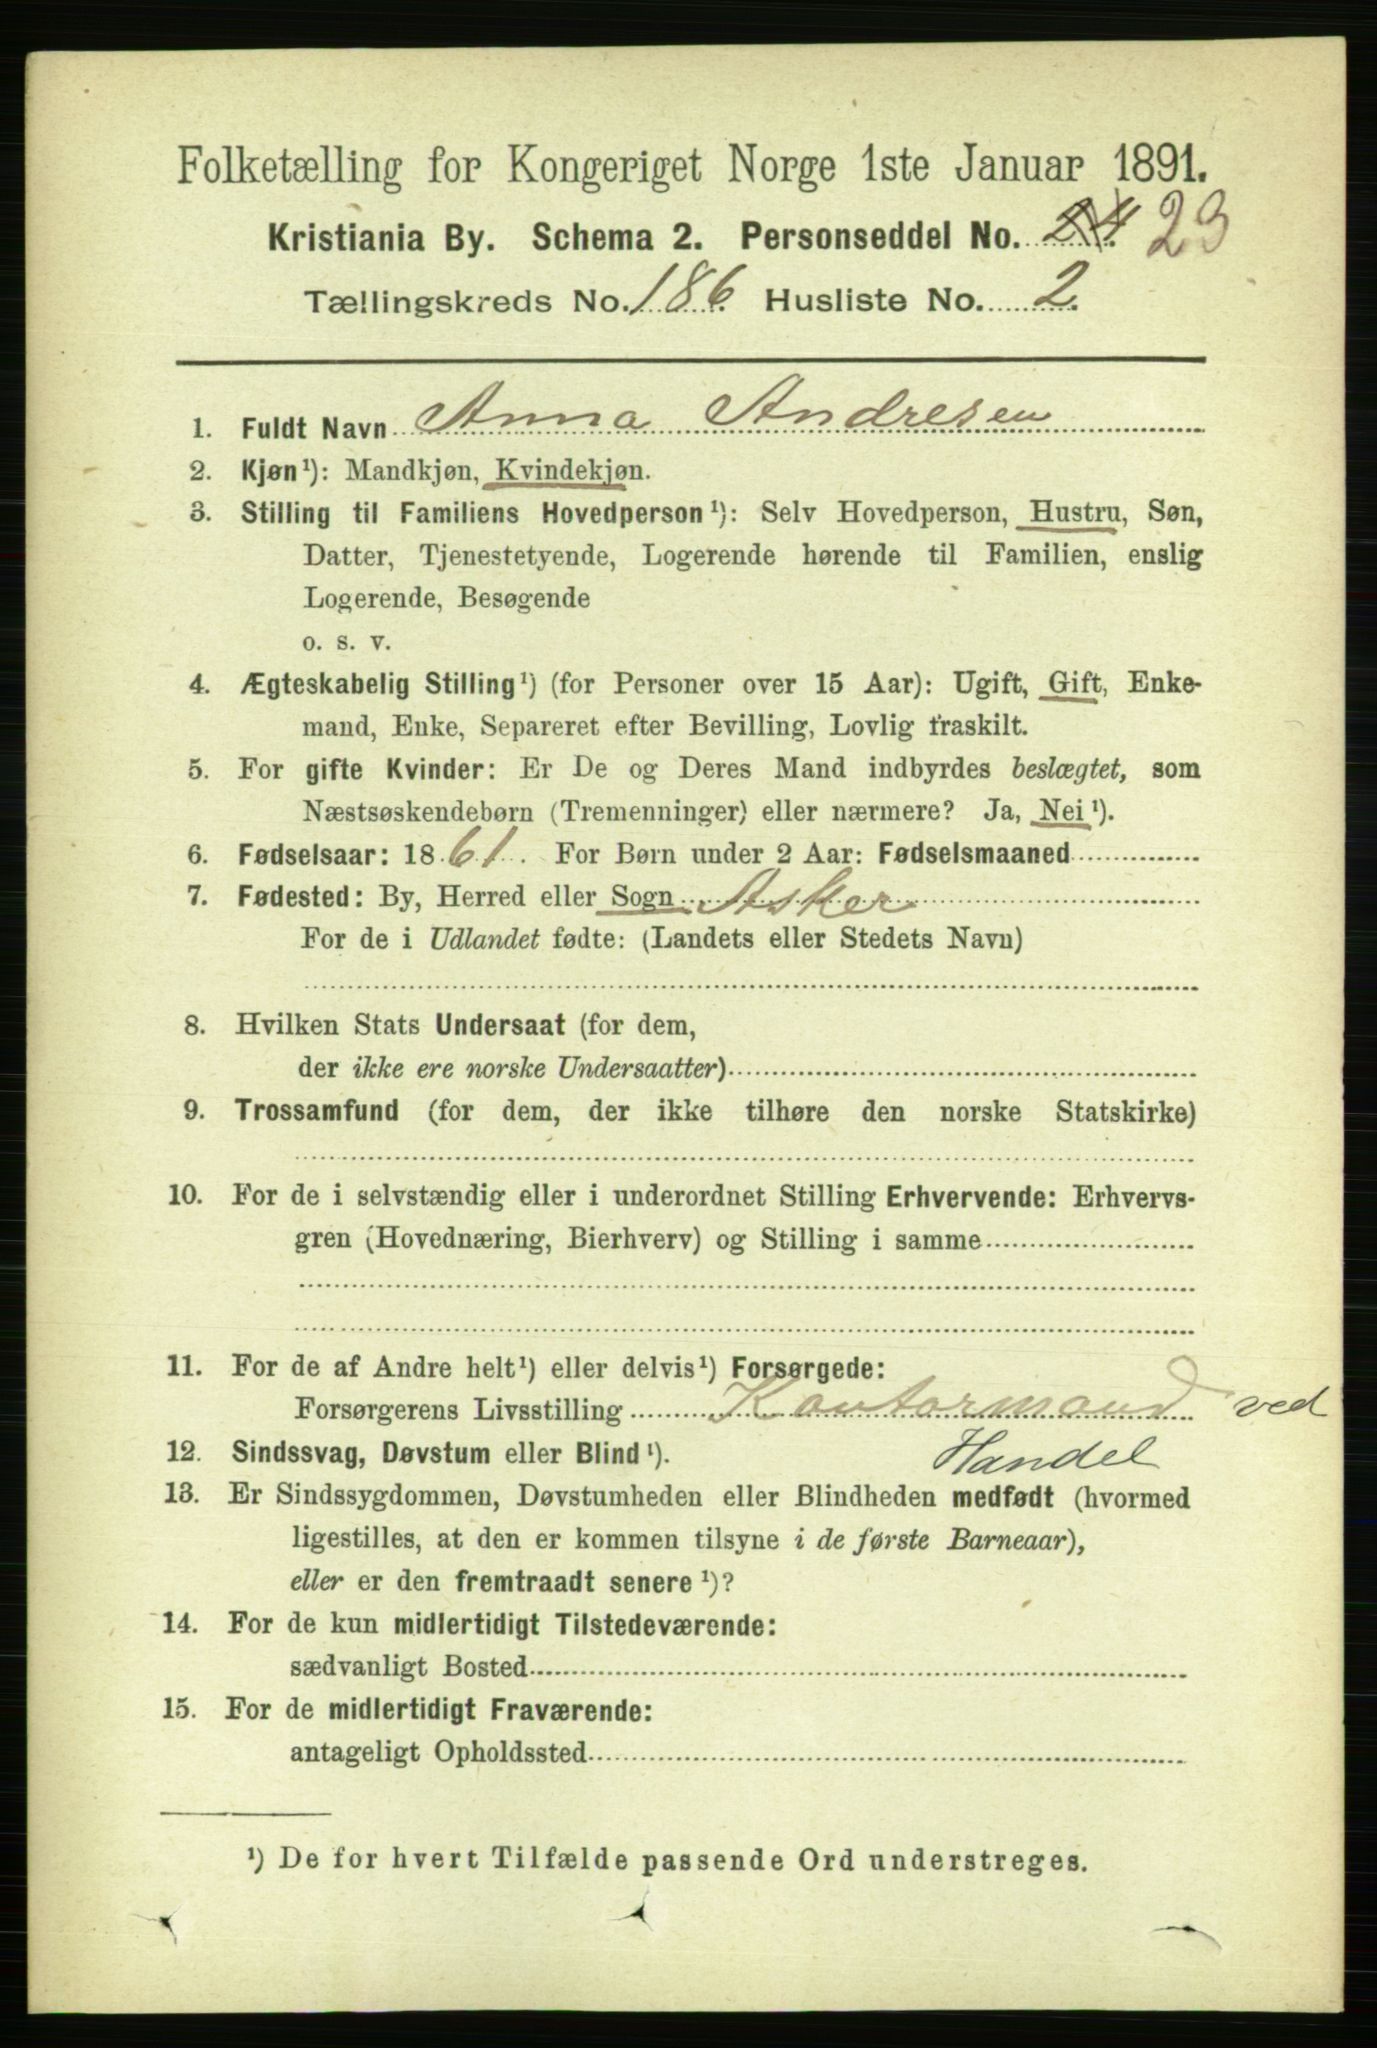 Folketælling for Kongeriget Norge 1ste Januar 1891.
Kristiania By. Schema 2. Personseddel No. 24 23
Tællingskreds No. 186 Husliste No. 2.
1. Fuldt Navn Anna Andresen
2. Kjøn¹): Mandkjøn, Kvindekjøn.
3. Stilling til Familiens Hovedperson¹): Selv Hovedperson, Hustru, Søn,
Datter, Tjenestetyende, Logerende hørende til Familien, enslig
Logerende, Besøgende
o. s. v.
4. Ægteskabelig Stilling¹) (for Personer over 15 Aar): Ugift, Gift, Enke-
mand, Enke, Separeret efter Bevilling, Lovlig fraskilt.
5. For gifte Kvinder: Er De og Deres Mand indbyrdes beslægtet, som
Næstsøskendebørn (Tremenninger) eller nærmere? Ja, Nei¹).
6. Fødselsaar: 1861. For Børn under 2 Aar: Fødselsmaaned
7. Fødested: By, Herred eller Sogn Asker
For de i Udlandet fødte: (Landets eller Stedets Navn)
8. Hvilken Stats Undersaat (for dem,
der ikke ere norske Undersaatter)
9. Trossamfund (for dem, der ikke tilhøre den norske Statskirke)
10. For de i selvstændig eller i underordnet Stilling Erhvervende: Erhvervs-
gren (Hovednæring, Bierhverv) og Stilling i samme
11. For de af Andre helt¹) eller delvis¹) Forsørgede:
Forsørgerens Livsstilling Kontormand ved
Handel
12. Sindssvag, Døvstum eller Blind¹).
13. Er Sindssygdommen, Døvstumheden eller Blindheden medfødt (hvormed
ligestilles, at den er kommen tilsyne i de første Barneaar),
eller er den fremtraadt senere¹)?
14. For de kun midlertidigt Tilstedeværende:
sædvanligt Bosted
15. For de midlertidigt Fraværende:
antageligt Opholdssted
¹) De for hvert Tilfælde passende Ord understreges.